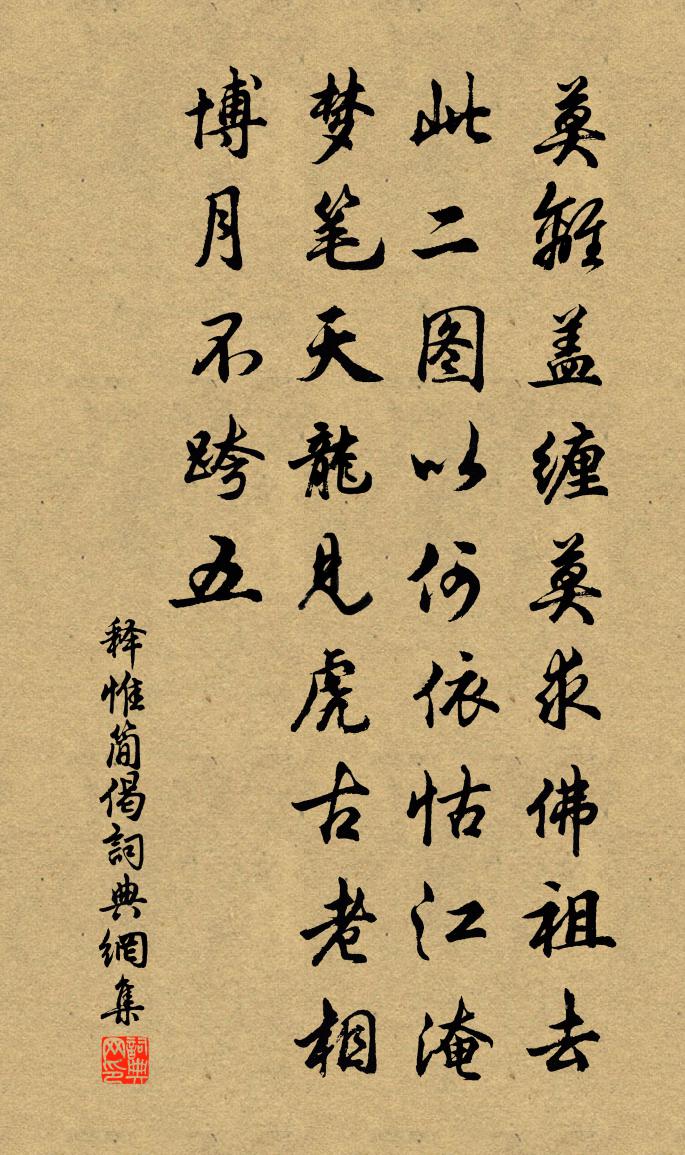 莫離盖缠莫求佛祖去
此二图以何依怙江淹
梦笔天龍見虎古老相
博月不跨五
释惟简偈詞典網集
詞典网印